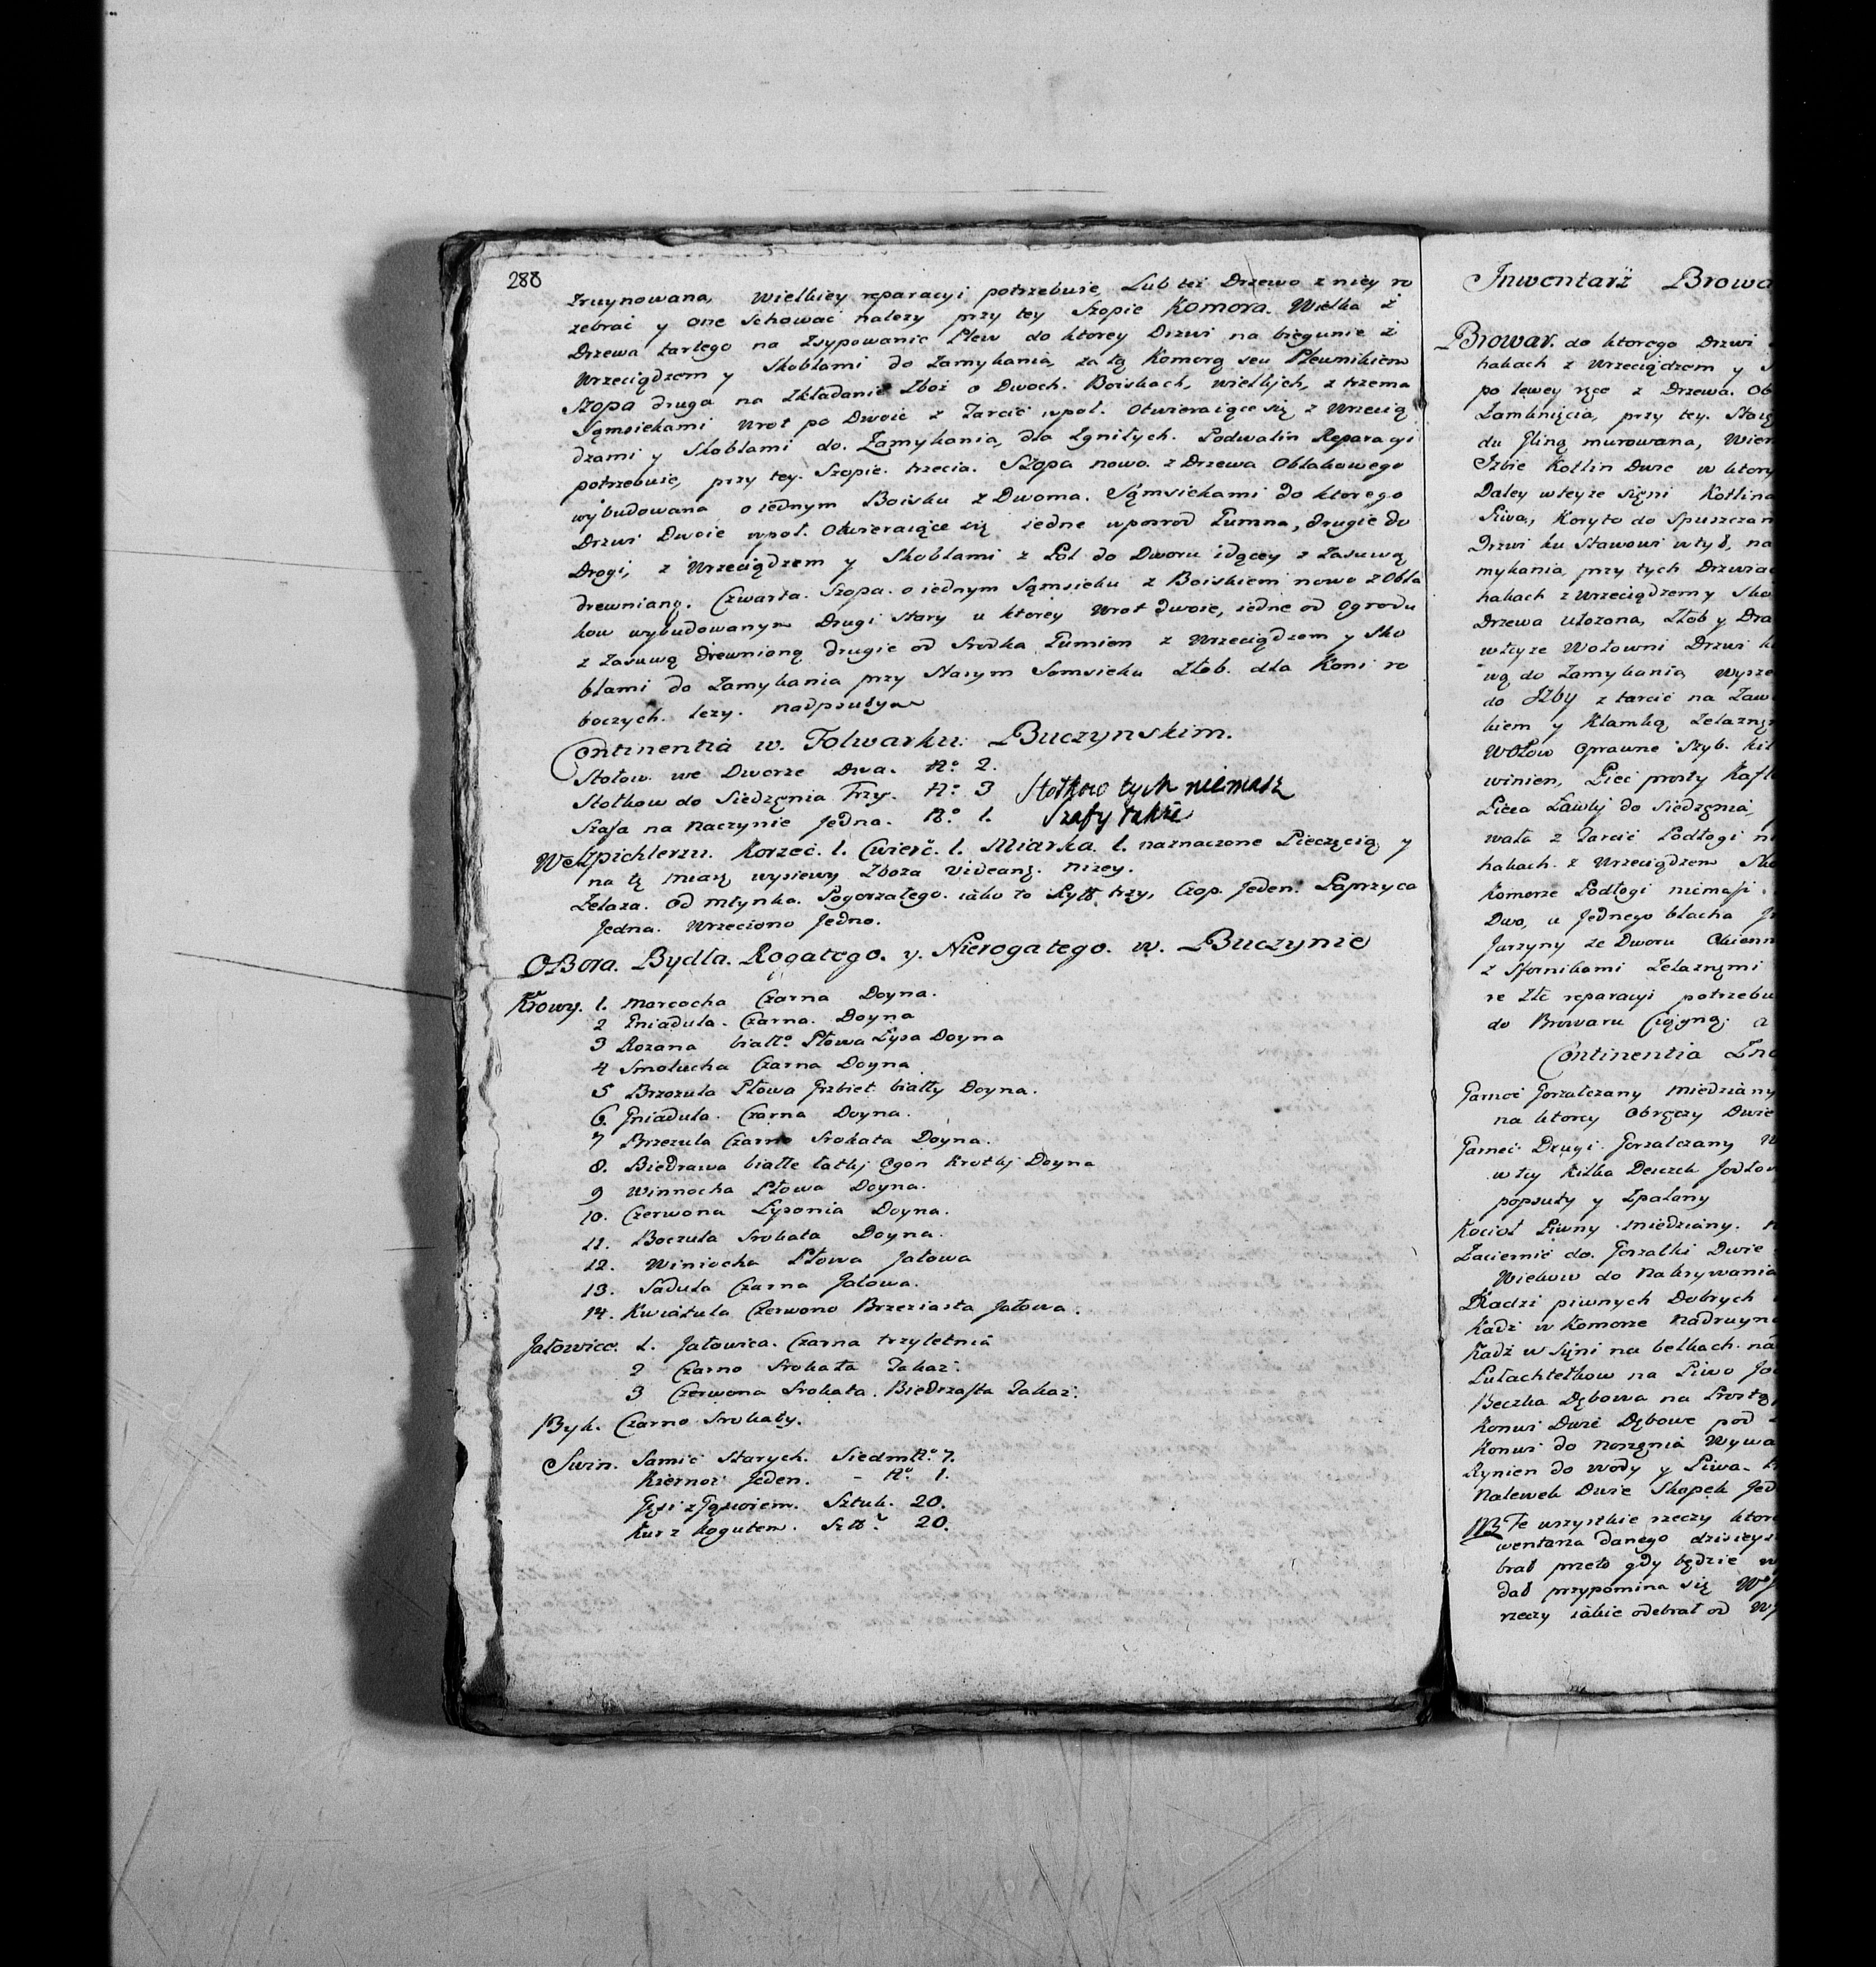 288
zruynowana, Wielkiey reparacyi potrzebuie, Lub też Drzewo z niey ro
zebrać y one Schować nalezy przy tey Szopie Komora. Wielka z
Drzewa tartego na Zsypowanie Plew do ktorey Drzwi na biegunie z
Wrzeciądzem y Skoblami do Zamykania, za tą Komorą seu Plewnikiem
Szopa druga na Zkładanie Zboż o Dwoch. Boiskach, wielkijch, z trzema
Sąmsiekami Wrot po Dwoie z Tarcic wpoł. Otwieraiące się z Wrzecią
dzami y Skoblami do. Zamykania, dla Zgniłych. Podwalin Reparacyi
potrzebuie, przy tey. Szopie. trzecia. Szopa nowo. z Drzewa Oblakowego
wybudowana o iednym Boisku z Dwoma. Sąmsiekami do ktorego
Drzwi Dwoie wpoł. Otwieraiące się iedne wposrod Gumna, drugie do
Drogi, z Wrzeciądzem y Skoblami z Pol do Dworu idącey z Zasuwą
drewnianą. Czwarta. Szopa. o iednym Sąmsieku z Boiskiem nowo z Obla
kow wybudowanym Drugi stary u ktorey Wrot dwoie, iedne od Ogrodu
z Zasuwą drewnianą drugie od Srodka Gumien z Wrzeciądzem y Sko
blami do Zamykania przy Starym Somsieku Złob. dla Koni ro
boczych. lezy. nadpsuty
Continentia w. Folwarku: Buczynskim.
Stołow. we Dworze Dwa. No: 2.
Stołkow do Siedzęnia Trzy. No: 3 Stołkow tych niemasz
Szafa na Naczynie Jedna. No: 1. Szafy także
We Szpichlerzu. Korzec. 1. Cwierć. 1. Miarka. 1. naznaczone Pieczęcią y
na tę miarę wysiewy Zboza videanz. nizey.
Zelaza. Od młynka. Pogorzałego. iako to Ryff. trzy, Czop. Jeden. Paprzyca
Jedna. Wrzeciono Jedno.
OBora. Bydła. Rogatego. y. Nierogatego. w. Buczynie
Krowy. 1. Marcocha Czarna Doyna.
2 Gniadula. Czarna. Doyna
3 Rozana białło. Płowa Łysa Doyna
4 Smolucha Czarna Doyna
5 Brzozula Płowa Grzbiet białły Doyna.
6. Gniadula. Czarna Doyna.
7 Brzezula Czarno Srokata Doyna.
8. Biedrawa białłe łatkj Ogon Krotkj Doyna
9 Winnocha Płowa Doyna.
10. Czerwona Łysonia Doyna.
11. Boczula Srokata Doyna.
12. Winiocha Płowa Jałowa
13. Sadula Czarna Jałowa.
14. Kwiatula Czerwono Brzeziasta Jałowa.
Jałowice. 1. Jałowica. Czarna trzyletnia
2 Czarno Srokata Takaz.
3 Czerwona Srokata. Biedrzasta Takaz.
Byk. Czarno Srokaty.
Swin. Samic Starych. Siedm No. 7.
Kiernoz Jeden. - No. 1.
Gęsi z Gąsiorem. Sztuk. 20.
Kur z kogutem. Sztk. 20.
Inwentarz Browa
Browar. do ktorego Drzwi
hakach z Wrzeciądzem y
po lewey ręce z Drzewa.
Zamknięcia, przy tey.
du Gliną murowana,
Izbie Kotlin Dwie w ktory
Daley wteyze sięni Kotlina
Piwa, Koryto do Spuszczan
Drzwi ku Stawowi wtył, na
mykania, przy tych Drzwia
hakach z Wrzeciądzem y Sko
Drzewa ułozona, Złob y Dra
wteyze Wołowni Drzwi
wą do Zamykania wysze
do Izby z tarcic na Zaw
kiem y Klamką Zelazną
Wołow Oprawne Szyb.
winien, Piec prosty Kafl
Pieca Ławky do Siedzęnia,
wała z Tarcic Podłogi
hakach. z Wrzeciądzem Sko
Komorze Podłogi niemasz.
Dwo, u Jednego blacha
Jarzyny ze Dworu Okienn
z Sfornikami Zelaznymi
re Złe reparacyi potrzebu
do Browaru Ciągną.
Continentia
Garniec Gorzałczany Miedziany
na ktorey Obręczy Dwie
Garniec Drugi. Gorzałczany
wtey Kilka Deszczek Jodło
popsuty y Zpalony
Kocioł Piwny Miedziany.
Zaciernic do. Gorzałki Dwie
Wiekow do Nakrywania
Kadzi piwnych Dobrych
Kadz w Komorze Nadruyn
Kadz w Sięni na belkach. na
Pułachtelkow na Piwo
Beczka Dębowa na
Konwi Dwie Dębowe pod
Konwi do Noszęnia
Rynien do wody y Piwa.
Nalewek Dwie Skopek Jed
NB Te wszystkie rzeczy ktore
wentarza danego dzisieys
brał przeto gdy będzie
dał przypomina się
rzeczy iakie odebrał od